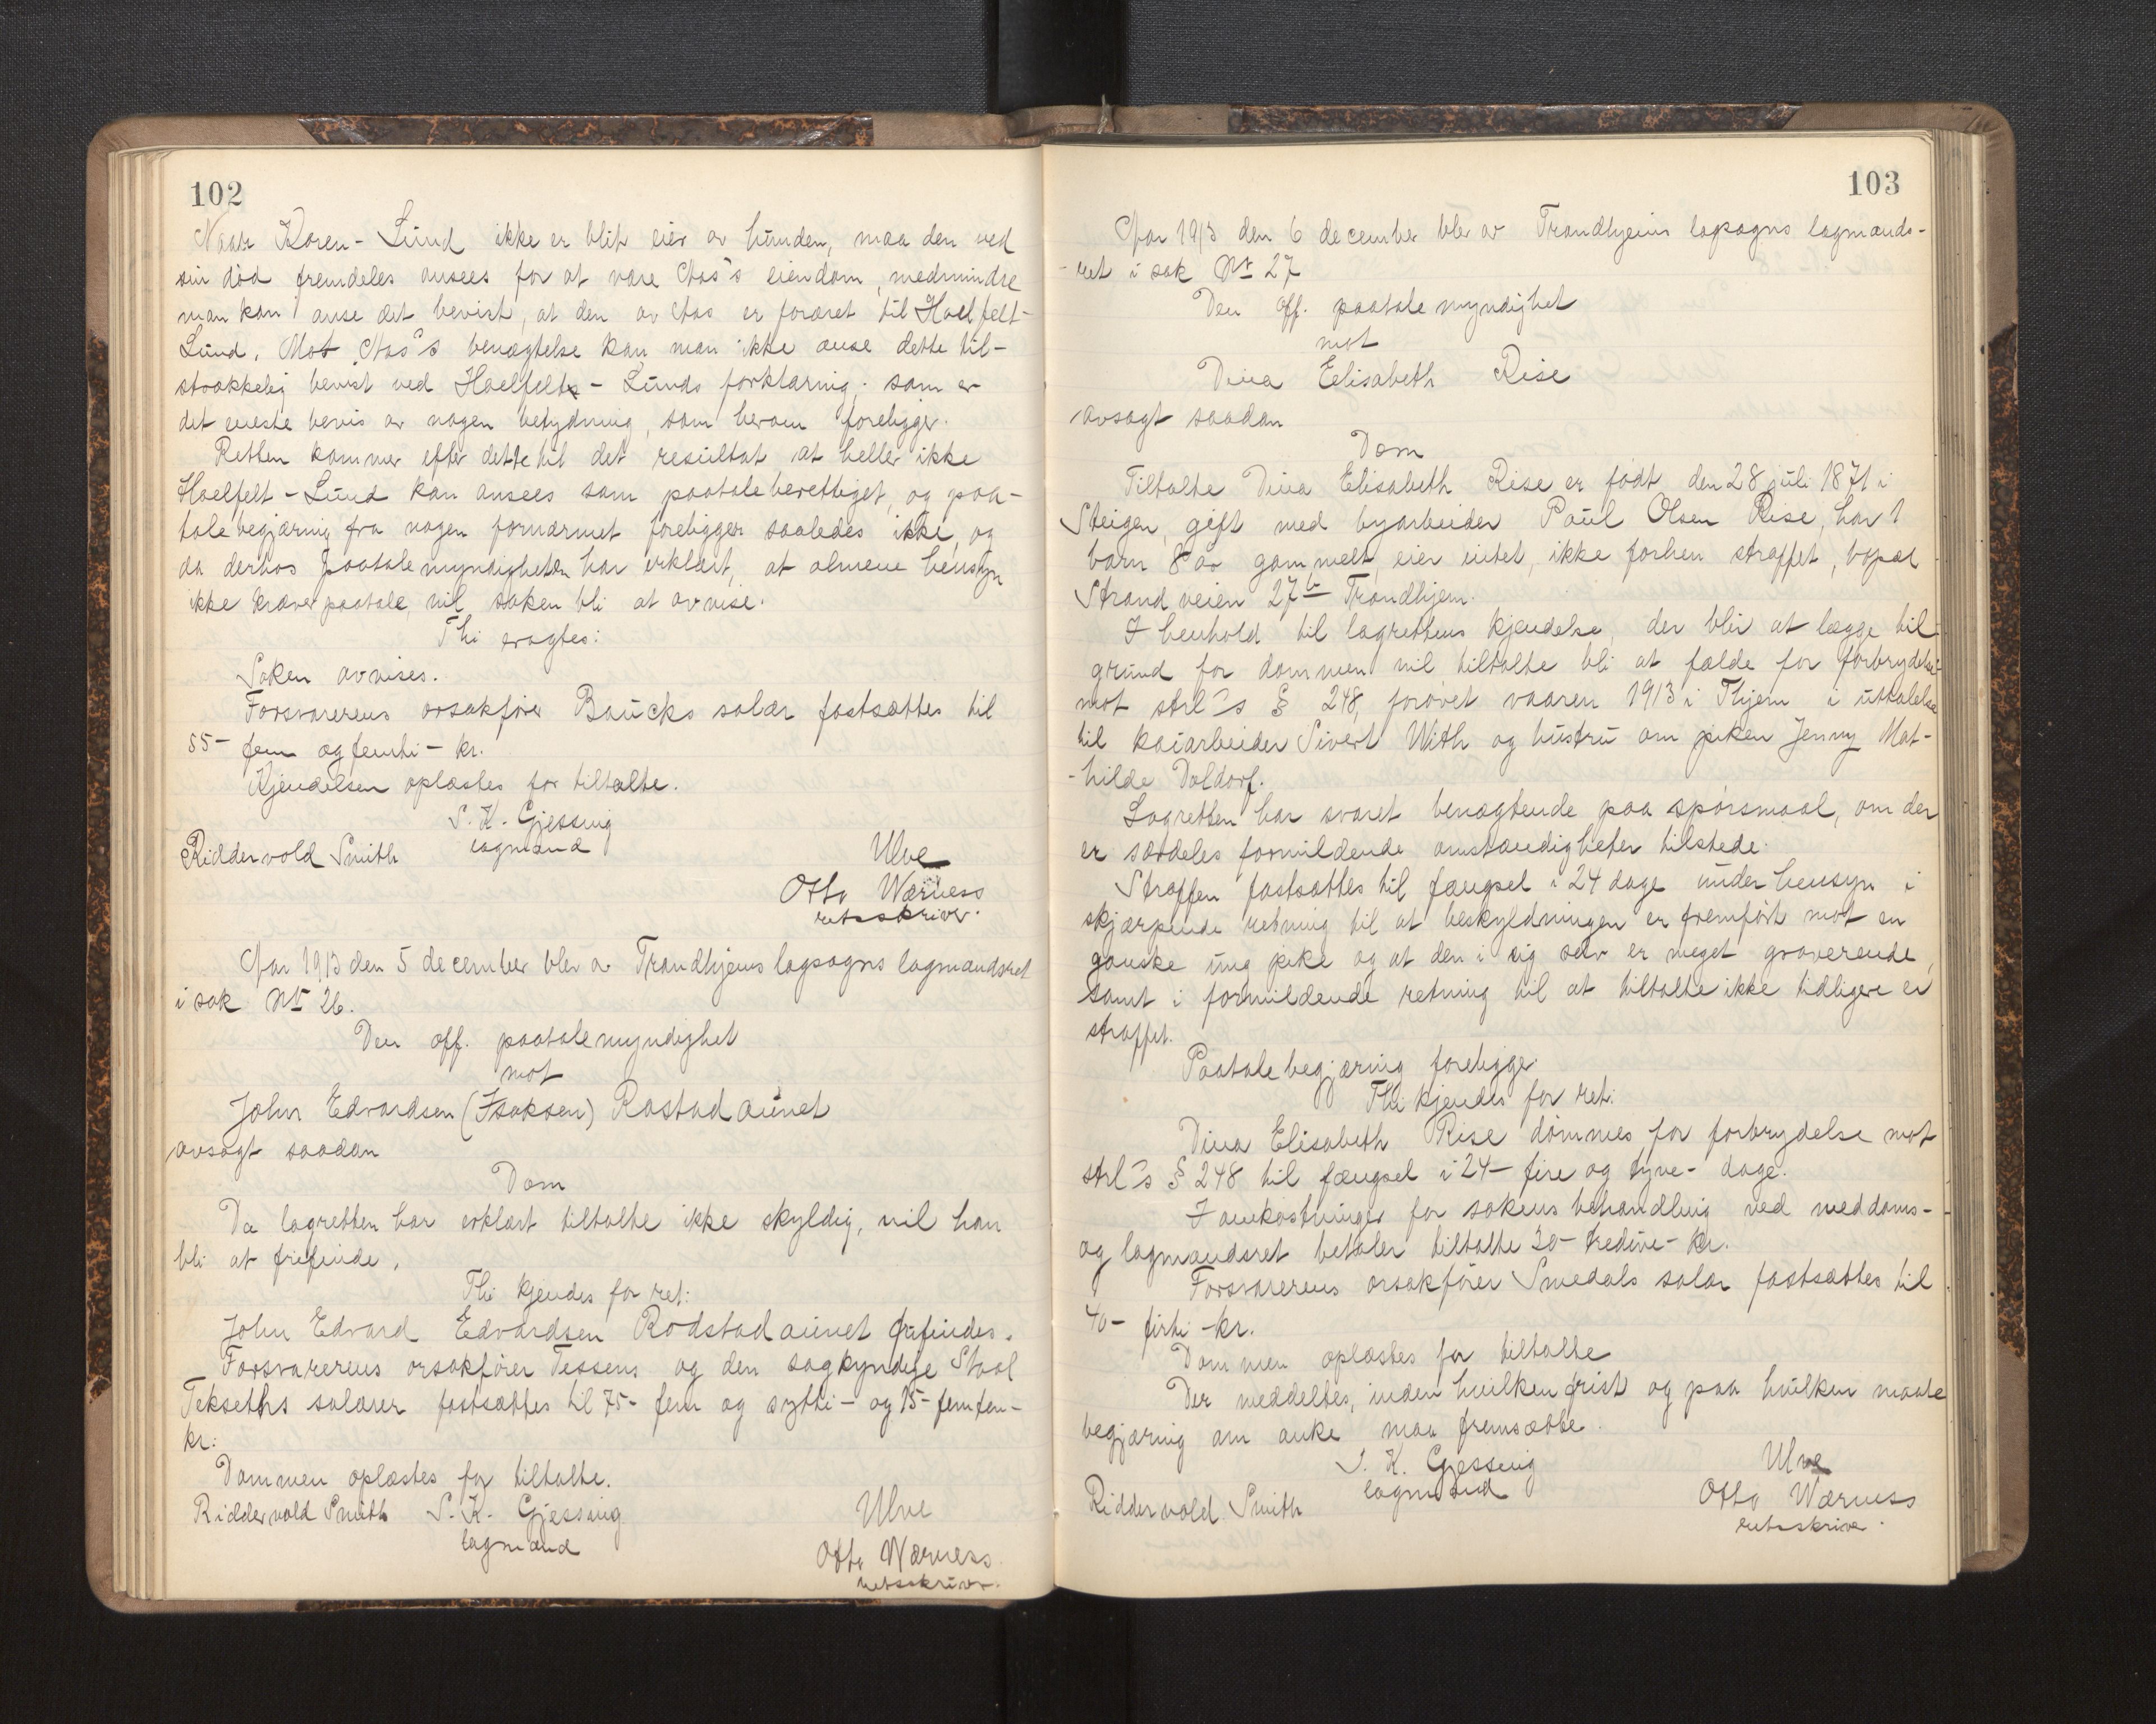 102
Naar Karen-Lund ikke er blit eier av hunden, maa den ved
sin død fremdeles ansees for at være Aas's eiendom, medmindre
man kan anse det bevist, at den av Aas er foræret til Haelfelt-
Lund. Mot Aas's benægtelse kan man ikke anse dette til-
strækkelig bevist ved Haelfelts-Lunds forklaring, som er
det eneste bevis av nogen betydning, som herom foreligger.
Retten kommer efter dette til det resultat at heller ikke
Haelfelt-Lund kan ansees som paataleberettiget, og paa-
talebegjæring fra nogen fornærmet foreligger saaledes ikke, og
da derhos paatalemyndigheten har erklært, at almene hensyn
ikke kræver paatale, vil saken bli at avvise.
Thi eragtes:
Saken avvises.
Forsvarerens orsakfører Baucks salær fastsættes til
55- fem og femti- kr.
Kjendelsen oplæstes for tiltalte.
S. K. Gjessing
lagmand
Riddervold Smith
Ulve
Otto Wærness
retsskriver.
Aar 1913 den 5 december blev av Trondhjems lagsogns lagmandsret
i sak Nr 26.
Den off. paatalemyndighet
mot
John Edvardsen (Isaksen) Rastadaunet
avsagt saadan
Dom
Da lagretten har erklært tiltalte ikke skyldig, vil han
bli at frifinde.
Thi kjendes for ret:
John Edvard Edvardsen Rodstadaunet frifindes.
Forsvarerens orsakfører Tessems og den sagkyndige Staal
Tekseths salærer fastsættes til 75- fem og sytti- og 15- femten-
kr.
Dommen oplæstes for tiltalte.
Riddervold Smith S. K. Gjessing
lagmand
Ulve
Otto Wærness
retsskriver.
103
Aar 1913 den 6 december blev av Trondhjems lagsogns lagmands-
-ret i sak Nr 27
Den off. paatalemyndighet
mot
Dina Elisabeth Rise
avsagt saadan
Dom
Tiltalte Dina Elisabeth Rise er født den 28 juli 1871 i
Steigen, gift med byarbeider Paul Olsen Rise, har 1
barn 8 aar gammelt, eier intet, ikke forhen straffet, bopæl
Strandveien 27b Trondhjem.
I henhold til lagrettens kjendelse, der blir at lægge til
grund for dommen vil tiltalte bli at fælde for forbrydelse
mot strl's § 248, forøvet vaaren 1913 i Thjem i uttalelse
til kaiarbeider Sivert With og hustru om piken Jenny Mat-
-hilde Daldorf.
Lagretten har svaret benægtende paa spørsmaal, om der
er særdeles formildende omstændigheter tilstede.
Straffen fastsættes til fængsel i 24 dage under hensyn i
skjærpende retning til at beskyldningen er fremført mot en
ganske ung pike og at den i sig selv er meget graverende,
samt i formildende retning til at tiltalte ikke tidligere er
straffet.
Paatalebegjæring foreligger.
Thi kjendes for ret:
Dina Elisabeth Rise dømmes for forbrydelse mot
strl's § 248 til fængsel i 24- fire og tyve- dage.
I omkostninger for sakens behandling ved meddoms-
og lagmandsret betaler tiltalte 30- tredive- kr.
Forsvarerens orsakfører Smedals salær fastsættes til
40- firti -kr.
Dommen oplæstes for tiltalte
Der meddeltes, inden hvilken frist og paa hvilken maate
begjæring om anke maa fremsættes.
S. K. Gjessing
lagmand
Riddervold Smith
Ulve
Otto Wærness
retsskriver.